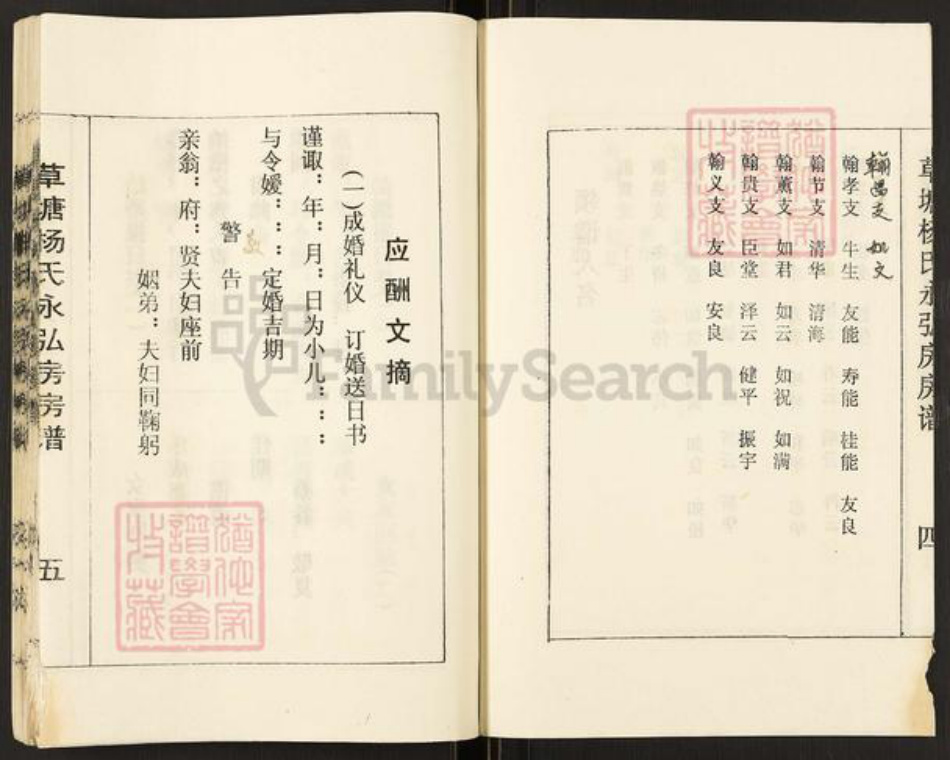 草塘杨氏永弘房房谱
四
翰昌支 如文
翰孝支 牛生 友能 寿能 桂能 友良
翰节支 清华 清海
翰薰支 如君 如云 如祝 如满
翰贵支 臣堂 泽云 健平 振宇
翰义支 友良 安良
应酬文摘
(一)成婚礼仪 订婚送日书
谨诹：年：月：日为小儿：：：
与令嫒：：：定婚吉期
警告
亲翁：府：贤夫妇座前
姻弟：夫妇同鞠躬
草塘杨氏永弘房房谱
五
FamilySearch
譜學會
收藏
譜學會
收藏